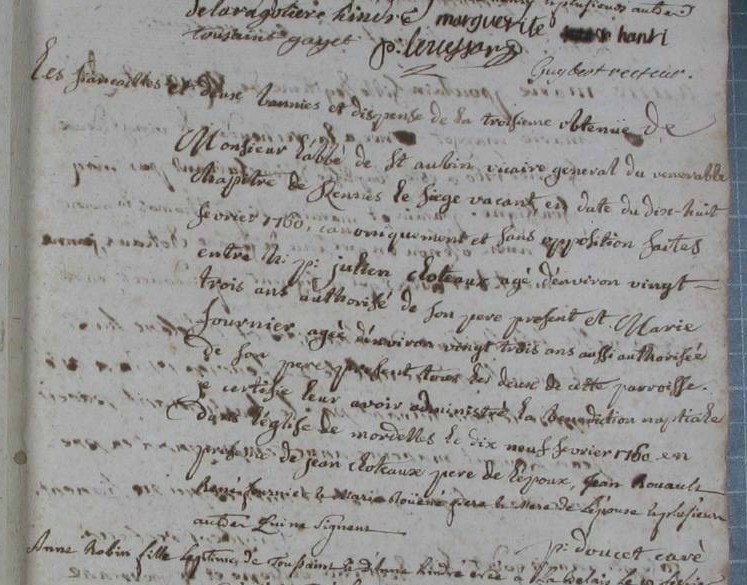 delaragotiere hindré marguerite hanri
toussaint gayet p: levessang
Guybert recteur.
Les fiançailles et deux bannies et dispense de la troisieme obtenüe de
Monsieur l'abbé de St aubin vicaire general du venerable
Chapitre de Rennes le siege vacant en date du dix-huit
fevrier 1760, canoniquement et sans opposition faites
entre h: p: julien cloteaux agé d'environ vingt
trois ans authorisé de son pere present et Marie
fournier agée d'environ vingt trois ans aussi authorisée
de son pere present tous les deux de cette parroisse.
je certifie leur avoir administré la Benediction nuptiale
dans l'église de mordelles le dix neuf fevrier 1760 en
presence de jean cloteaux pere de l'époux, jean Rouault
René fournier & Marie pere & Mere de l'épouse & plusieurs
autres qui ne signent
p: doucet curé
Anne Robin fille legitime de Toussaint & d'Anne hindré